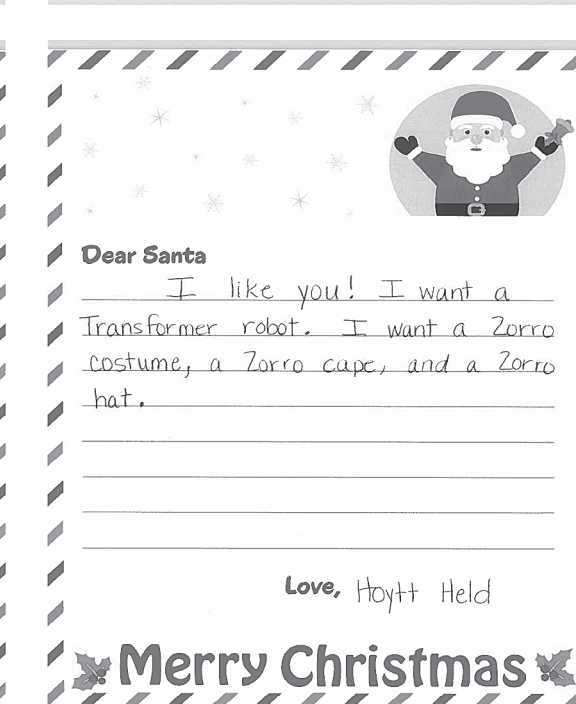 Dear Santa
I like you! I want a
Transformer robot. I want a Zorro
costume, a Zorro cape, and a Zorro
hat.
Love, Hoytt Held
Merry Christmas